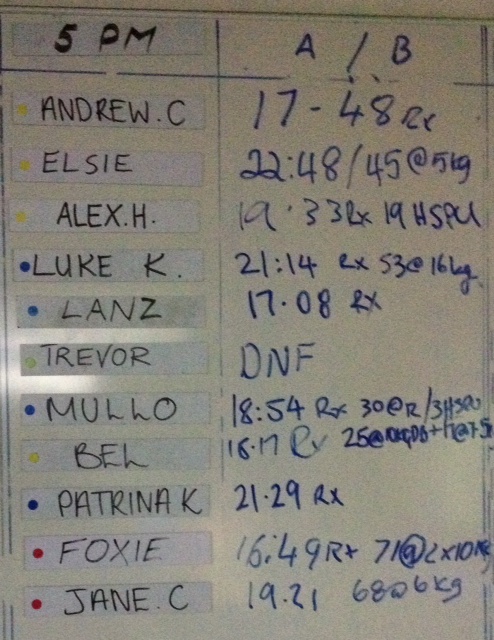 5 PM A / B
ANDREW.C 17-48 Rx
ELSIE 22:48/45@5kg
ALEX.H. 19.33Rx 19 HSPU
LUKE K. 21:14 Rx 53@16kg
LANZ 17.08 RX
TREVOR DNF
MULLO 18:54 Rx 30@R/3HSPU
BEL 18.17 Rx 25@10kgDB+17@7.5k
PATRINA K 21.29 RX
FOXIE 16:49Rx 71@2x10kg
JANE.C 19.21 68@6kg